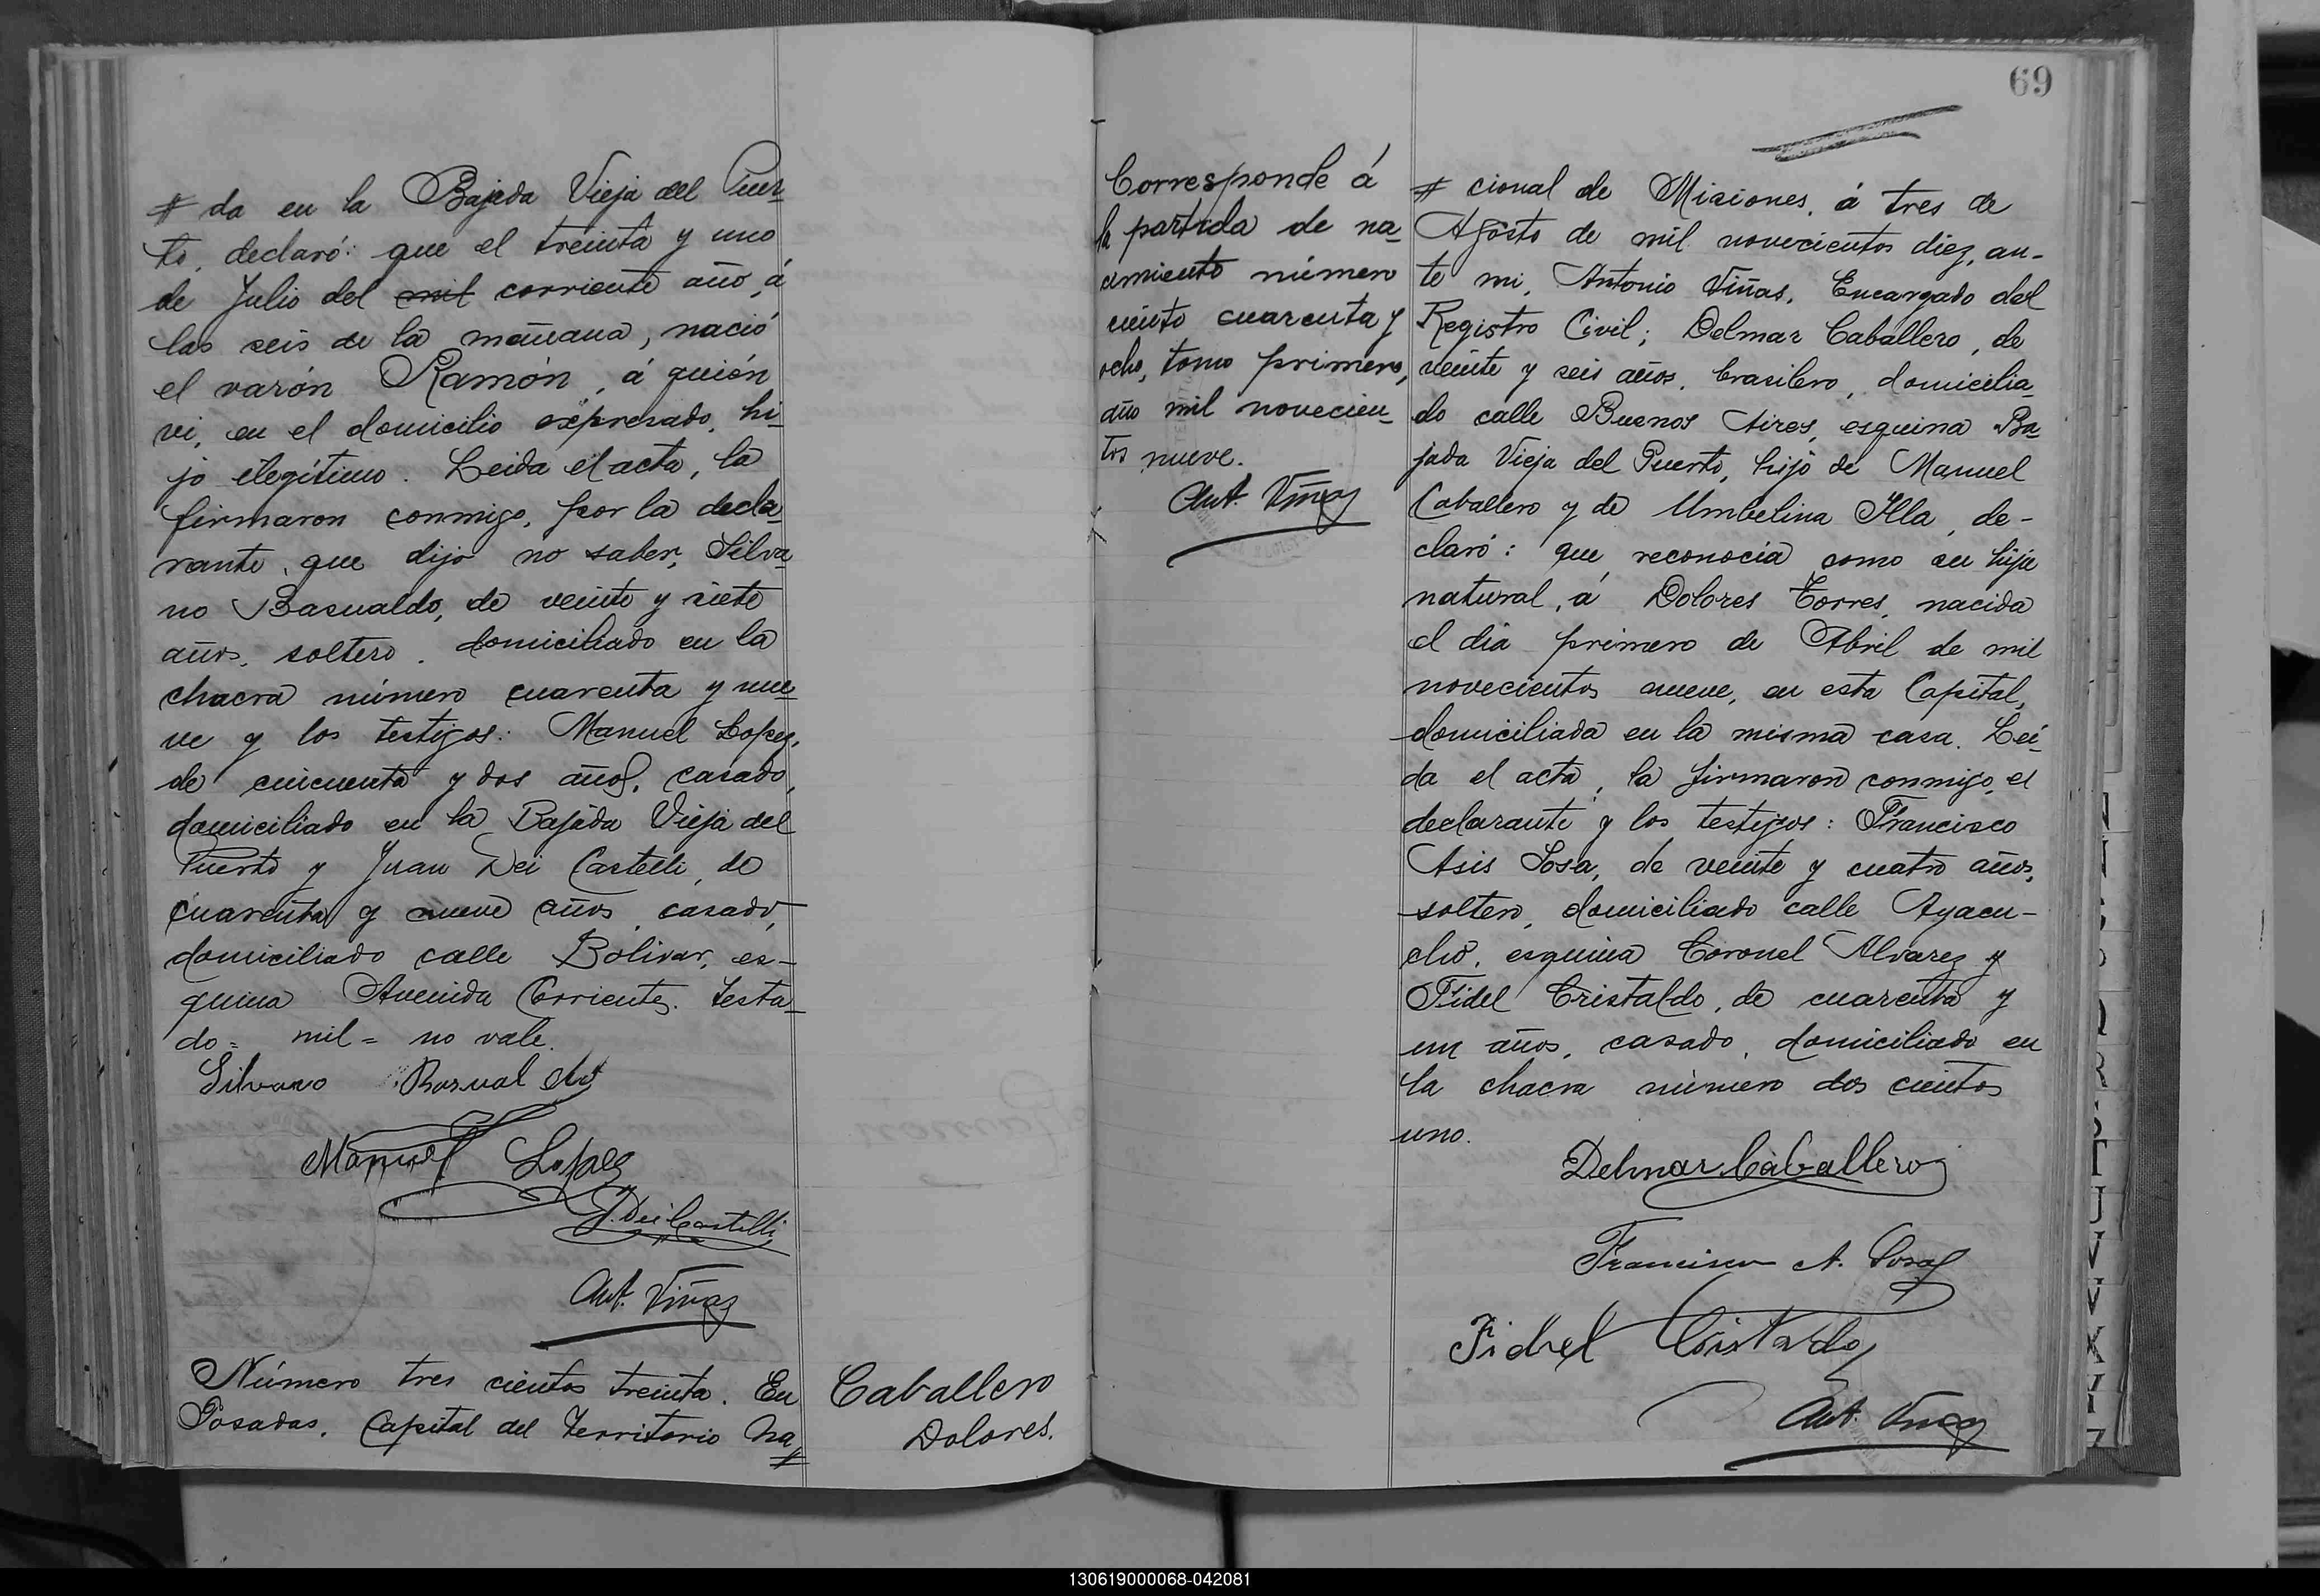 # da en la Bajada Vieja del Puer-
to, declaró: que el treinta y uno
de Julio del mil corriente año, á
las seis de la mañana, nació
el varón Ramón, á quién
vi, en el domicilio expresado, hi-
jo ilegítimo. Leida el acta, la
firmaron conmigo, por la decla-
rante, que dijo no saber, Silva-
no Basualdo, de veinte y siete
años, soltero, domiciliado en la
chacra número cuarenta y nue-
ve y los testigos: Manuel Lopez,
de cincuenta y dos años, casado,
domiciliado en la Bajada Vieja del
Puerto y Juan Dei Castelli, de
cuarenta y nueve años, casado,
domiciliado calle Bolivar, es-
quina Avenida Corrientes. Testa-
do = mil = no vale.
Silvano Basualdo
Manuel Lopez
J. Dei Castelli
Ant. Viñas
Número tres cientos treinta. En
Posadas, Capital del Territorio Na-
#
Caballero
Dolores.
69
Corresponde á
la partida de na-
cimiento número
ciento cuarenta y
ocho, tomo primero,
año mil novecien-
tos nueve.
Ant. Viñas
# cional de Misiones, á tres de
Agosto de mil novecientos diez, an-
te mi, Antonio Viñas, Encargado del
Registro Civil; Delmar Caballero, de
veinte y seis años, brasilero, domicilia-
do calle Buenos Aires, esquina Ba-
jada Vieja del Puerto, hijo de Manuel
Caballero y de Umbelina Illa, de-
claró: que reconocía como su hija
natural, á Dolores Torres, nacida
el día primero de Abril de mil
novecientos nueve, en esta Capital,
domiciliada en la misma casa. Lei-
da el acta, la firmaron conmigo, el
declarante y los testigos: Francisco
Asis Sosa, de veinte y cuatro años,
soltero, domiciliado calle Ayacu-
cho, esquina Coronel Alvarez y
Fidel Cristaldo, de cuarenta y
un años, casado, domiciliado en
la chacra número dos cientos
uno.
Delmar Caballero
Francisco A. Sosa
Fidel Cristaldo
Ant. Viñas
130619000068-042081